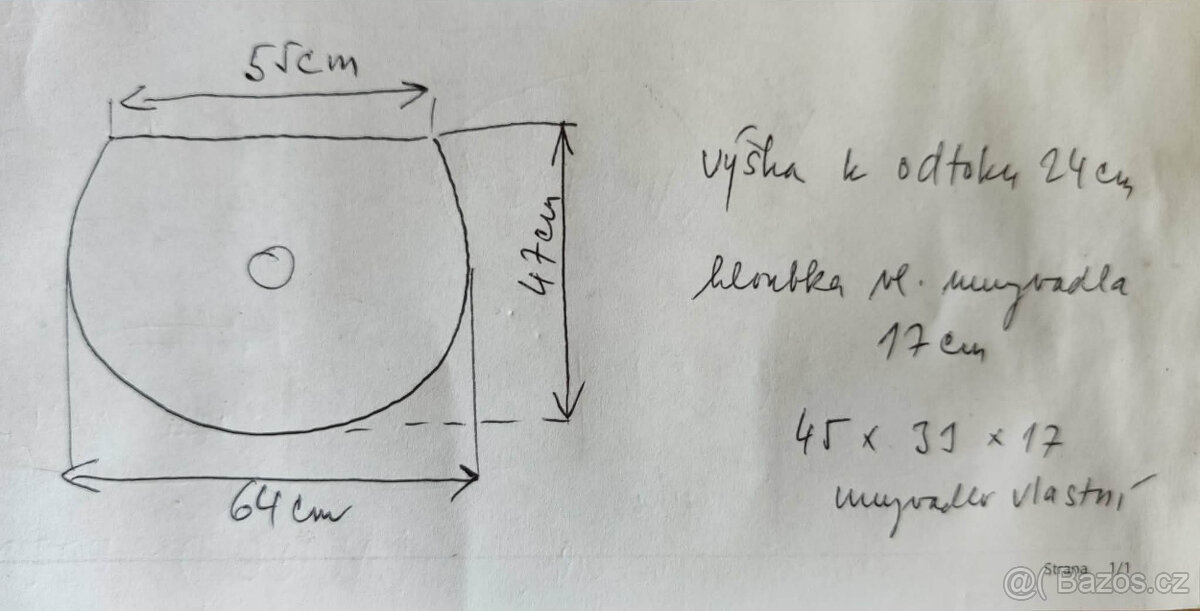 55cm
výška k odtoku 24cm
47cm
hloubka vl. umyvadla
17cm
45 x 39 x 17
umyvadlo vlastní
64cm
Strana 1/1
@( Bazos.cz